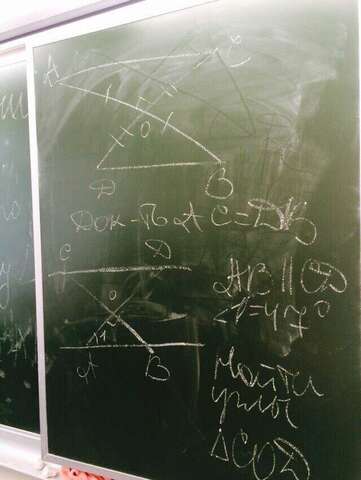 A C
O
D B
Док-ть AC=DB
C D
O
1
A B
AB||CD
<1=47°
Найти
углы
△COD